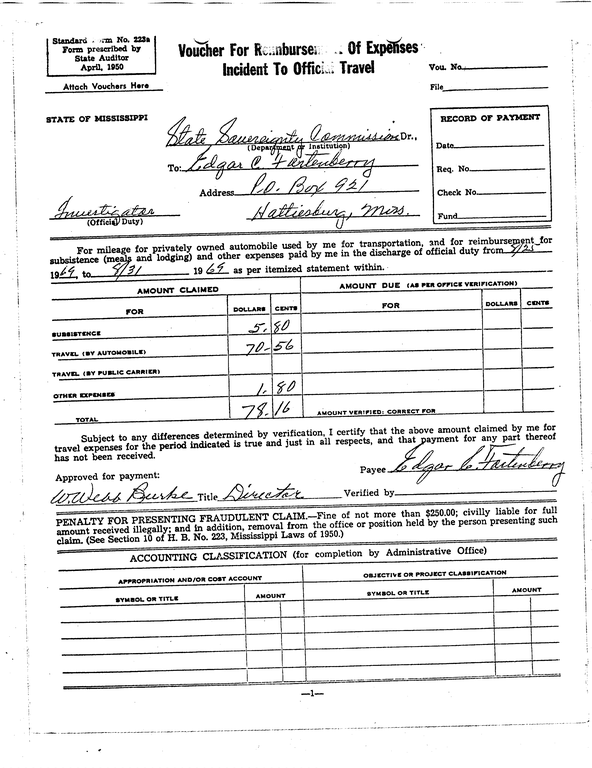 Standard Form No. 223a
Form prescribed by
State Auditor
April, 1950
Attach Vouchers Here
Voucher For Reimbursement Of Expenses
Incident To Official Travel
Vou. No.
File
STATE OF MISSISSIPPI
State Sovereignty Commission Dr.,
(Department or Institution)
To: Edgar C. Fortenberry
Address P.O. Box 921
Hattiesburg, Miss.
Investigator
(Official Duty)
RECORD OF PAYMENT
Date
Req. No.
Check No.
Fund
For mileage for privately owned automobile used by me for transportation, and for reimbursement for
subsistence (meals and lodging) and other expenses paid by me in the discharge of official duty from 8/25
1969, to 8/31 1969 as per itemized statement within.
AMOUNT CLAIMED AMOUNT DUE (AS PER OFFICE VERIFICATION)
FOR DOLLARS CENTS FOR DOLLARS CENTS
SUBSISTENCE 5.80
TRAVEL (BY AUTOMOBILE) 70-56
TRAVEL (BY PUBLIC CARRIER)
OTHER EXPENSES 1.80
TOTAL 78.16 AMOUNT VERIFIED: CORRECT FOR
Subject to any differences determined by verification, I certify that the above amount claimed by me for
travel expenses for the period indicated is true and just in all respects, and that payment for any part thereof
has not been received.
Payee Edgar C. Fortenberry
Approved for payment:
W. Webb Burke Title Director Verified by
PENALTY FOR PRESENTING FRAUDULENT CLAIM.—Fine of not more than $250.00; civilly liable for full
amount received illegally; and in addition, removal from the office or position held by the person presenting such
claim. (See Section 10 of H. B. No. 223, Mississippi Laws of 1950.)
ACCOUNTING CLASSIFICATION (for completion by Administrative Office)
APPROPRIATION AND/OR COST ACCOUNT OBJECTIVE OR PROJECT CLASSIFICATION
SYMBOL OR TITLE AMOUNT SYMBOL OR TITLE AMOUNT
—1—